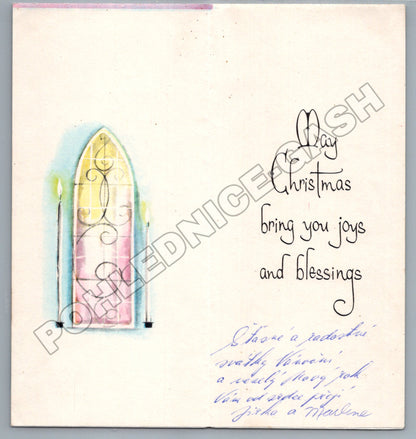 May
Christmas
bring you joys
and blessings
Šťastné a radostné
svátky Vánoční
a veselý Nový rok
Vám od srdce přejí
Jirka a Marlene
POHLEDNICE-GASH